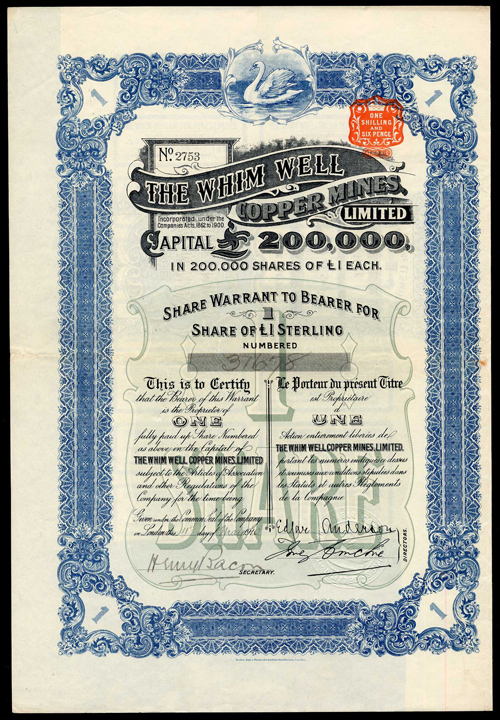 1
1
ONE
SHILLING
AND
SIX PENCE
No. 2753
THE WHIM WELL
COPPER MINES,
LIMITED
Incorporated under the
Companies Acts, 1862 to 1900
CAPITAL £200,000,
IN 200,000 SHARES OF £1 EACH.
SHARE WARRANT TO BEARER FOR
1
SHARE OF £1 STERLING
NUMBERED
1
SHARE
This is to Certify
that the Bearer of this Warrant
is the Proprietor of
ONE
fully paid up Share Numbered
as above in the Capital of
THE WHIM WELL COPPER MINES, LIMITED
subject to the Articles of Association
and other Regulations of the
Company for the time being
Given under the Common Seal of the Company
in London this day
Le Porteur du présent Titre
est Propriétaire
d'
UNE
Action entièrement libérée de
THE WHIM WELL COPPER MINES, LIMITED.
portant les numéros indiqués ci-dessus
et soumise aux conditions stipulées dans
les Statuts et autres Règlements
de la Compagnie
Edgar Anderson
DIRECTORS.
Henry Bacon
SECRETARY.
1
1